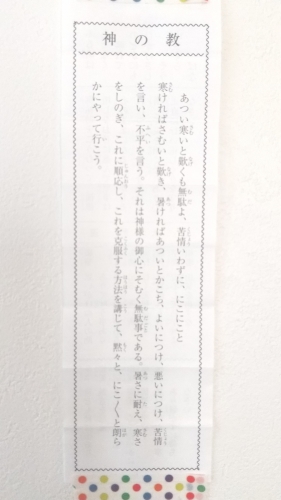 神の教
あつい寒いと歎くも無駄よ、苦情いわずに、にこにこと
寒ければさむいと歎き、暑ければあついとかこち、よいにつけ、悪いにつけ、苦情
を言い、不平を言う。それは神様の御心にそむく無駄事である。暑さに耐え、寒さ
をしのぎ、これに順応し、これを克服する方法を講じて、黙々と、にこ〳〵と朗ら
かにやって行こう。